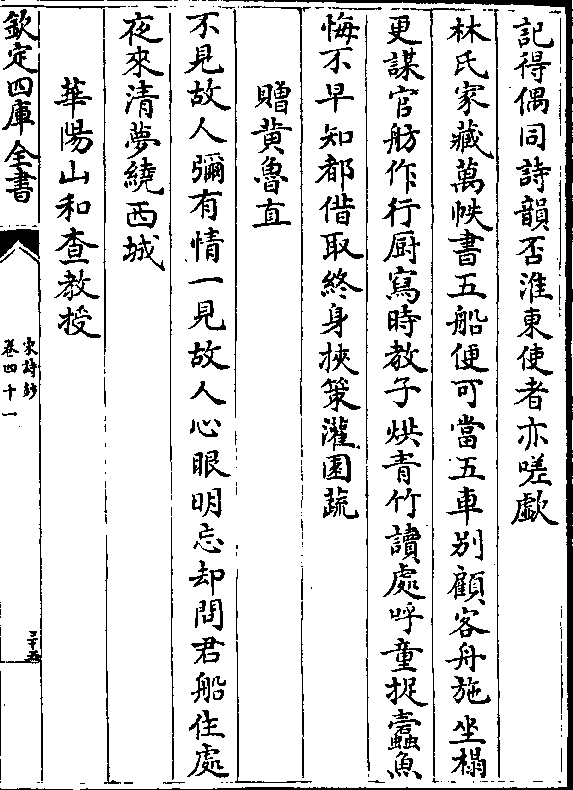 記得偶同詩韻否淮東使者亦嗟歔
林氏家藏萬帙書五船便可當五車别顧客舟施坐榻
更謀官舫作行厨寫時教子烘青竹讀處呼童捉蠹魚
悔不早知都借取終身挾策灌園蔬
贈黄魯直
不見故人彌有情一見故人心眼明忘却問君船住處
夜來清夢繞西城
華陽山和查教授
欽定四庫全書
宋詩鈔
卷四十一
三十五